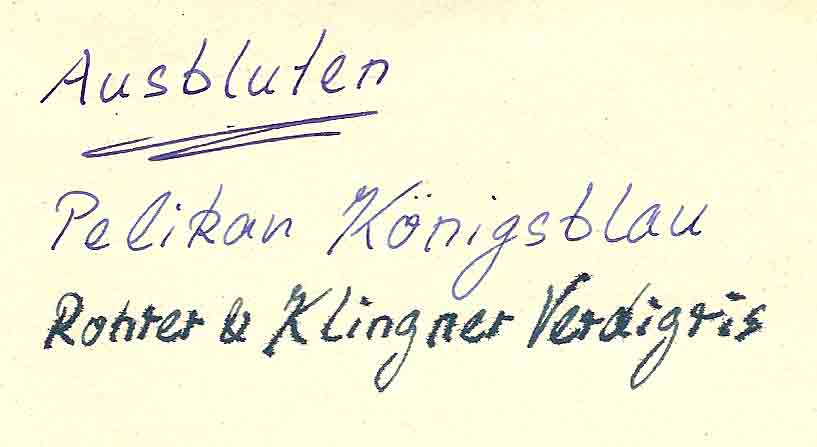 Ausbluten
Pelikan Königsblau
Rohrer & Klingner Verdigris